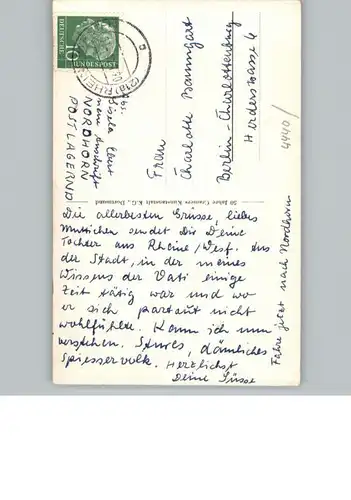 DEUTSCHE
BUNDESPOST
10
(21a) RHEINE
Abs.
NORDHORN
POSTLAGERND
Frau
Charlotte Baumgart
Berlin - Charlottenburg
Herderstrasse 4
4440/
50 Jahre Cramers Kunstanstalt K.G., Dortmund
Die allerbesten Grüsse, liebes
Muttichen sendet Dir Deine
Tochter aus Rheine/Wesf. Aus
der Stadt, in der meines
Wissens der Vati einige
Zeit tätig war und wo
er sich partout nicht
wohlfühlte. Kann ich nun
verstehen. Stures, dämliches
Spiesservolk. Herzlichst
Deine Süsse
Fahre jetzt nach Nordhorn